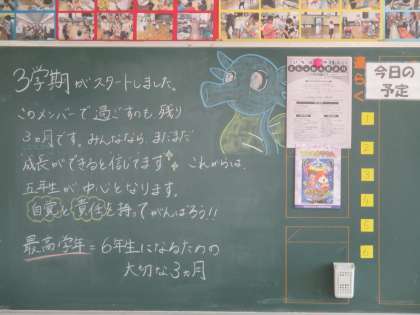 3学期がスタートしました。
このメンバーで過ごすのも残り
3ヵ月です。みんななら、まだまだ
成長ができると信じてます これからは、
五年生が中心となります。
自覚と責任を持ってがんばろう!!
最高学年=6年生になるための
大切な3ヵ月
今日の
予定
1
2
3
4
5
6